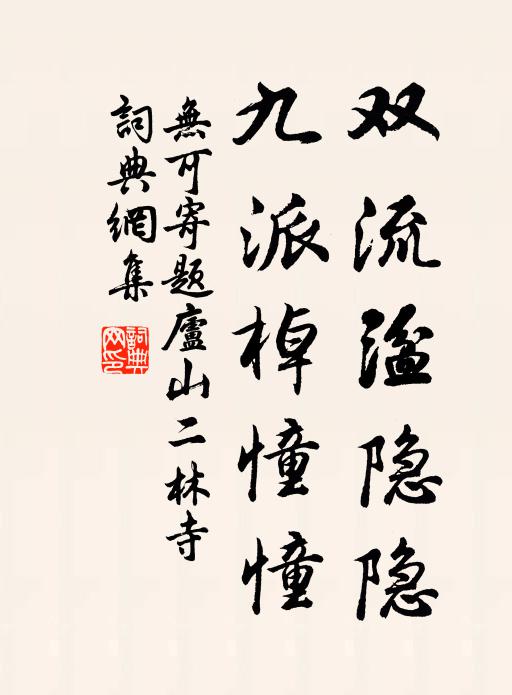 双流溢隐隐
九派棹憧憧
無可寄题廬山二林寺
詞典網集
詞典网印